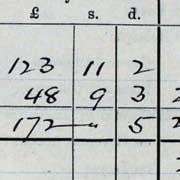 £ s. d.
123 11 2
48 9 3
172 — " 5